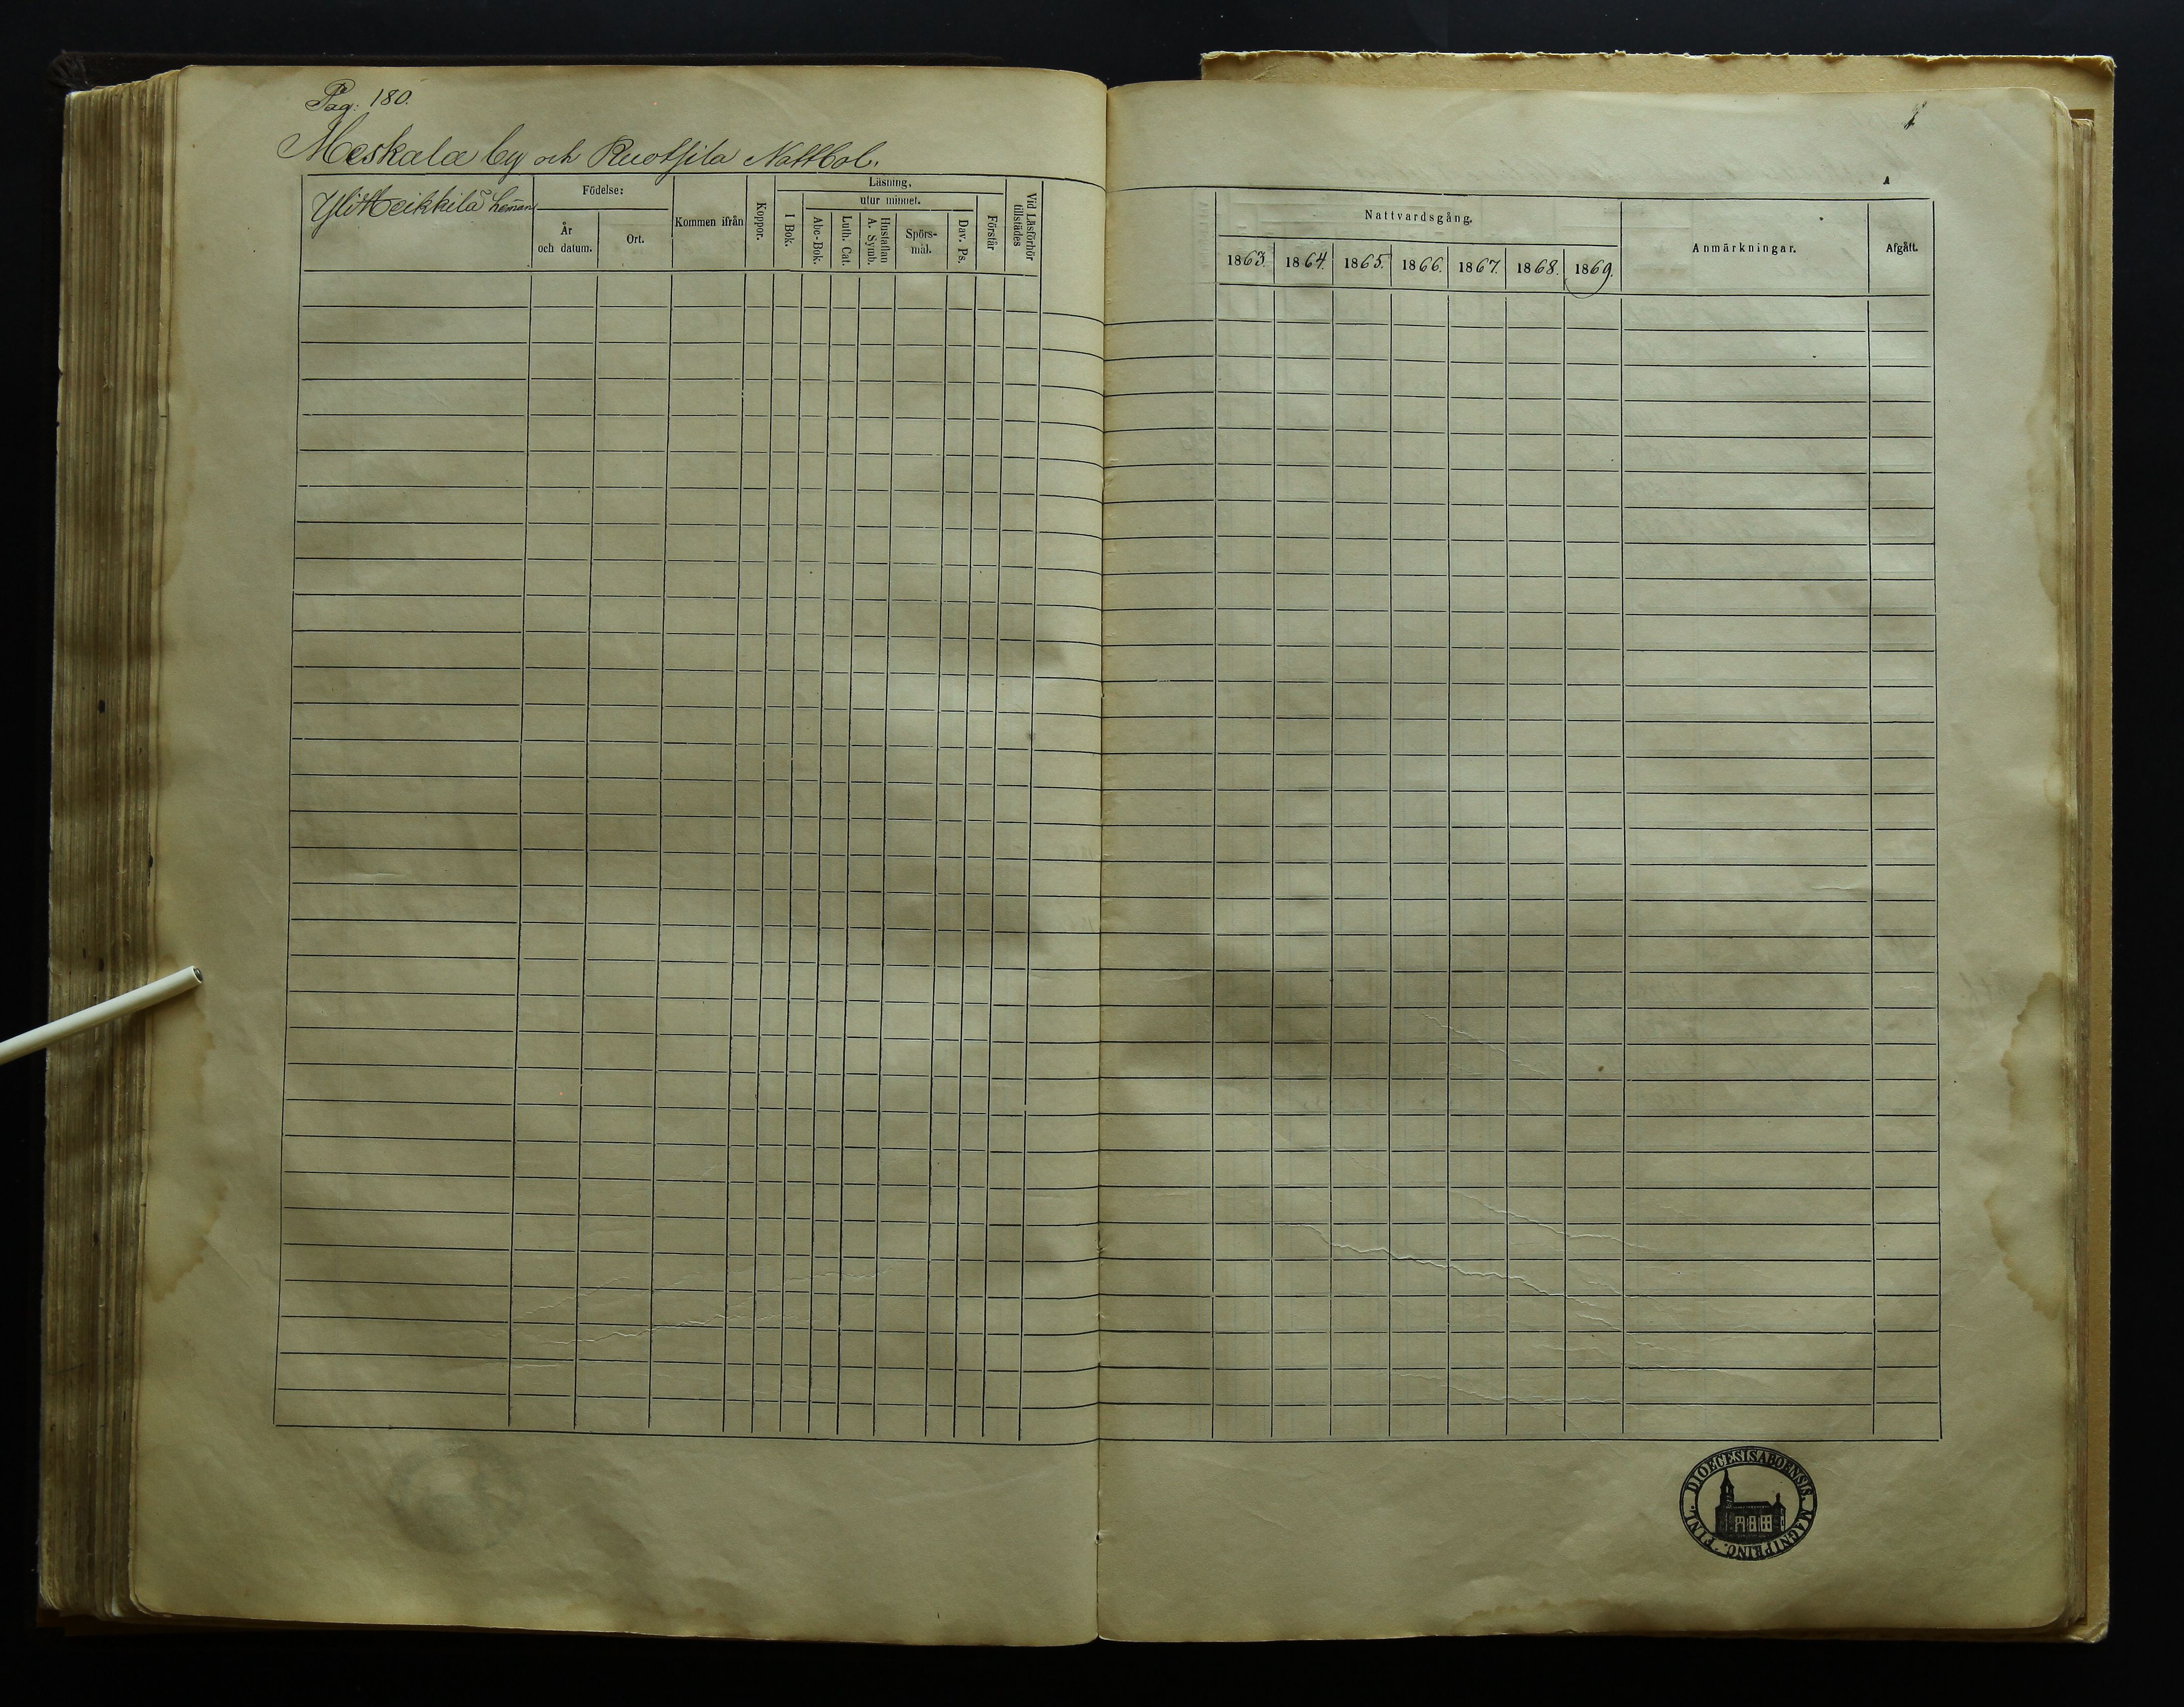 Pag: 180.
Meskala by och Ruotsila Nattbol.
Yli Heikkilä heman
Födelse:
År
och datum.
Ort.
Kommen ifrån
Koppor.
Läsning.
utur minnet.
I Bok.
Abc-Bok.
Luth. Cat.
Hustaflan
A. Symb.
Spörs-
mål.
Dav. Ps.
Förstår
Vid Läsförhör
tillstädes
Nattvardsgång.
1863. 1864. 1865. 1866. 1867. 1868. 1869.
Anmärkningar.
Afgått.
DIOECESIS ABOENSIS. MAGNI PRINC. FINL.